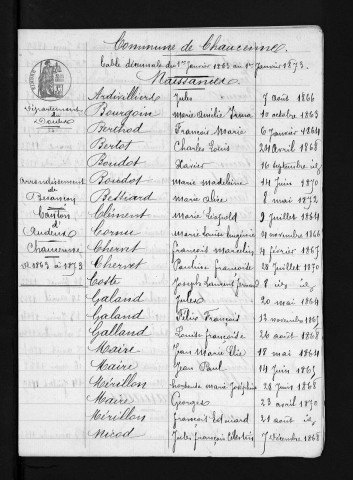 Commune de Chaucenne
Table décennale du 1er janvier 1863 au 1er janvier 1873.
Naissances
Département
du
Doubs
arrondissement de
Besançon
Canton
d'
Audeux
Chaucenne
de 1863 à 1873
Ardivilliers Jules 7 août 1866
Bourgoin marie Amélie 10 octobre 1863
Berthod François Marie 6 janvier 1864
Bertot Charles Louis 24 avril 1868
Boudot Xavier 16 septembre id
Boudot marie madeleine 14 juin 1870
Bestiard marie Alice 8 mai 1872
Clément marie Léopold 9 juillet 1864
Cornu marie Louise Eugénie 11 novembre 1866
Chervet françois marcelin 4 février 1867
Chervet Pauline françoise 28 juillet 1870
Coste Joseph Laurent fernand 8 id
Galand Jules 20 mai 1864
Galand Félix François 13 novembre 1865
Galland Louise françoise 26 août 1868
Maire Jean Marie Elie 18 mai 1864
Maire Jean Paul 14 juin 1865
Mérillon marie Joséphine 28 juin 1868
Maire Georges 23 avril 1870
Mérillon françois Edouard 21 août id
Nicod Jules françois Célestin 7 décembre 1868